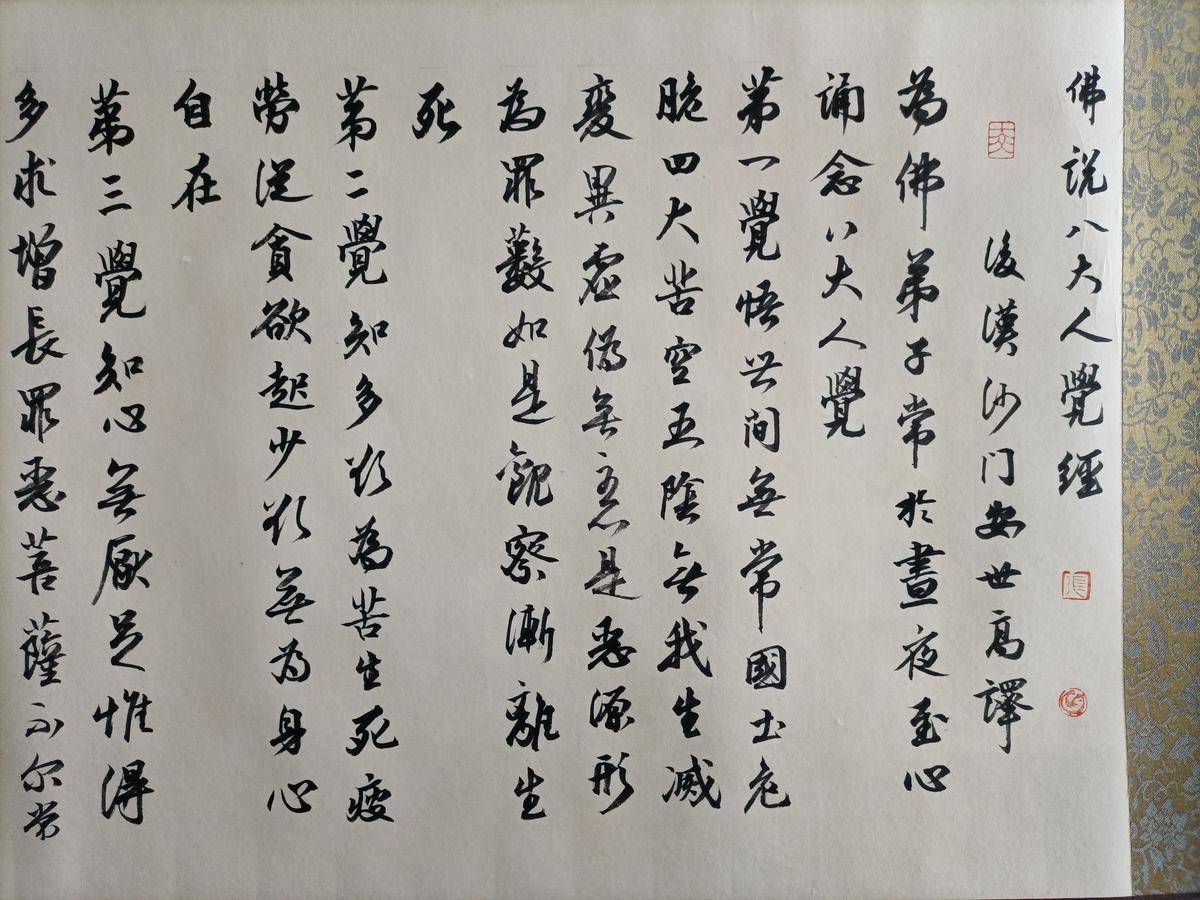 佛説八大人覺經
後漢沙门安世高譯
為佛弟子常於晝夜至心
誦念八大人覺
第一覺悟世间無常國土危
脆四大苦空五陰無我生滅
變異虛偽無主心是惡源形
為罪藪如是觀察漸離生
死
第二覺知多欲為苦生死疲
勞從貪欲起少欲無為身心
自在
第三覺知心無厭足惟得
多求增長罪惡菩薩不尔常